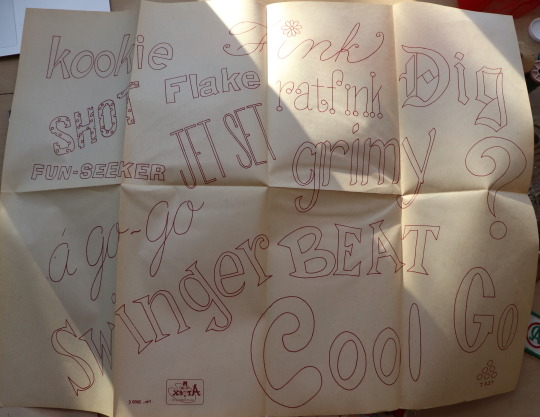 kookie
Fink
Dig
Flake
ratfink
SHOT
JET SET
grimy
FUN-SEEKER
?
á go-go
BEAT
Swinger
Cool
Go
TEST